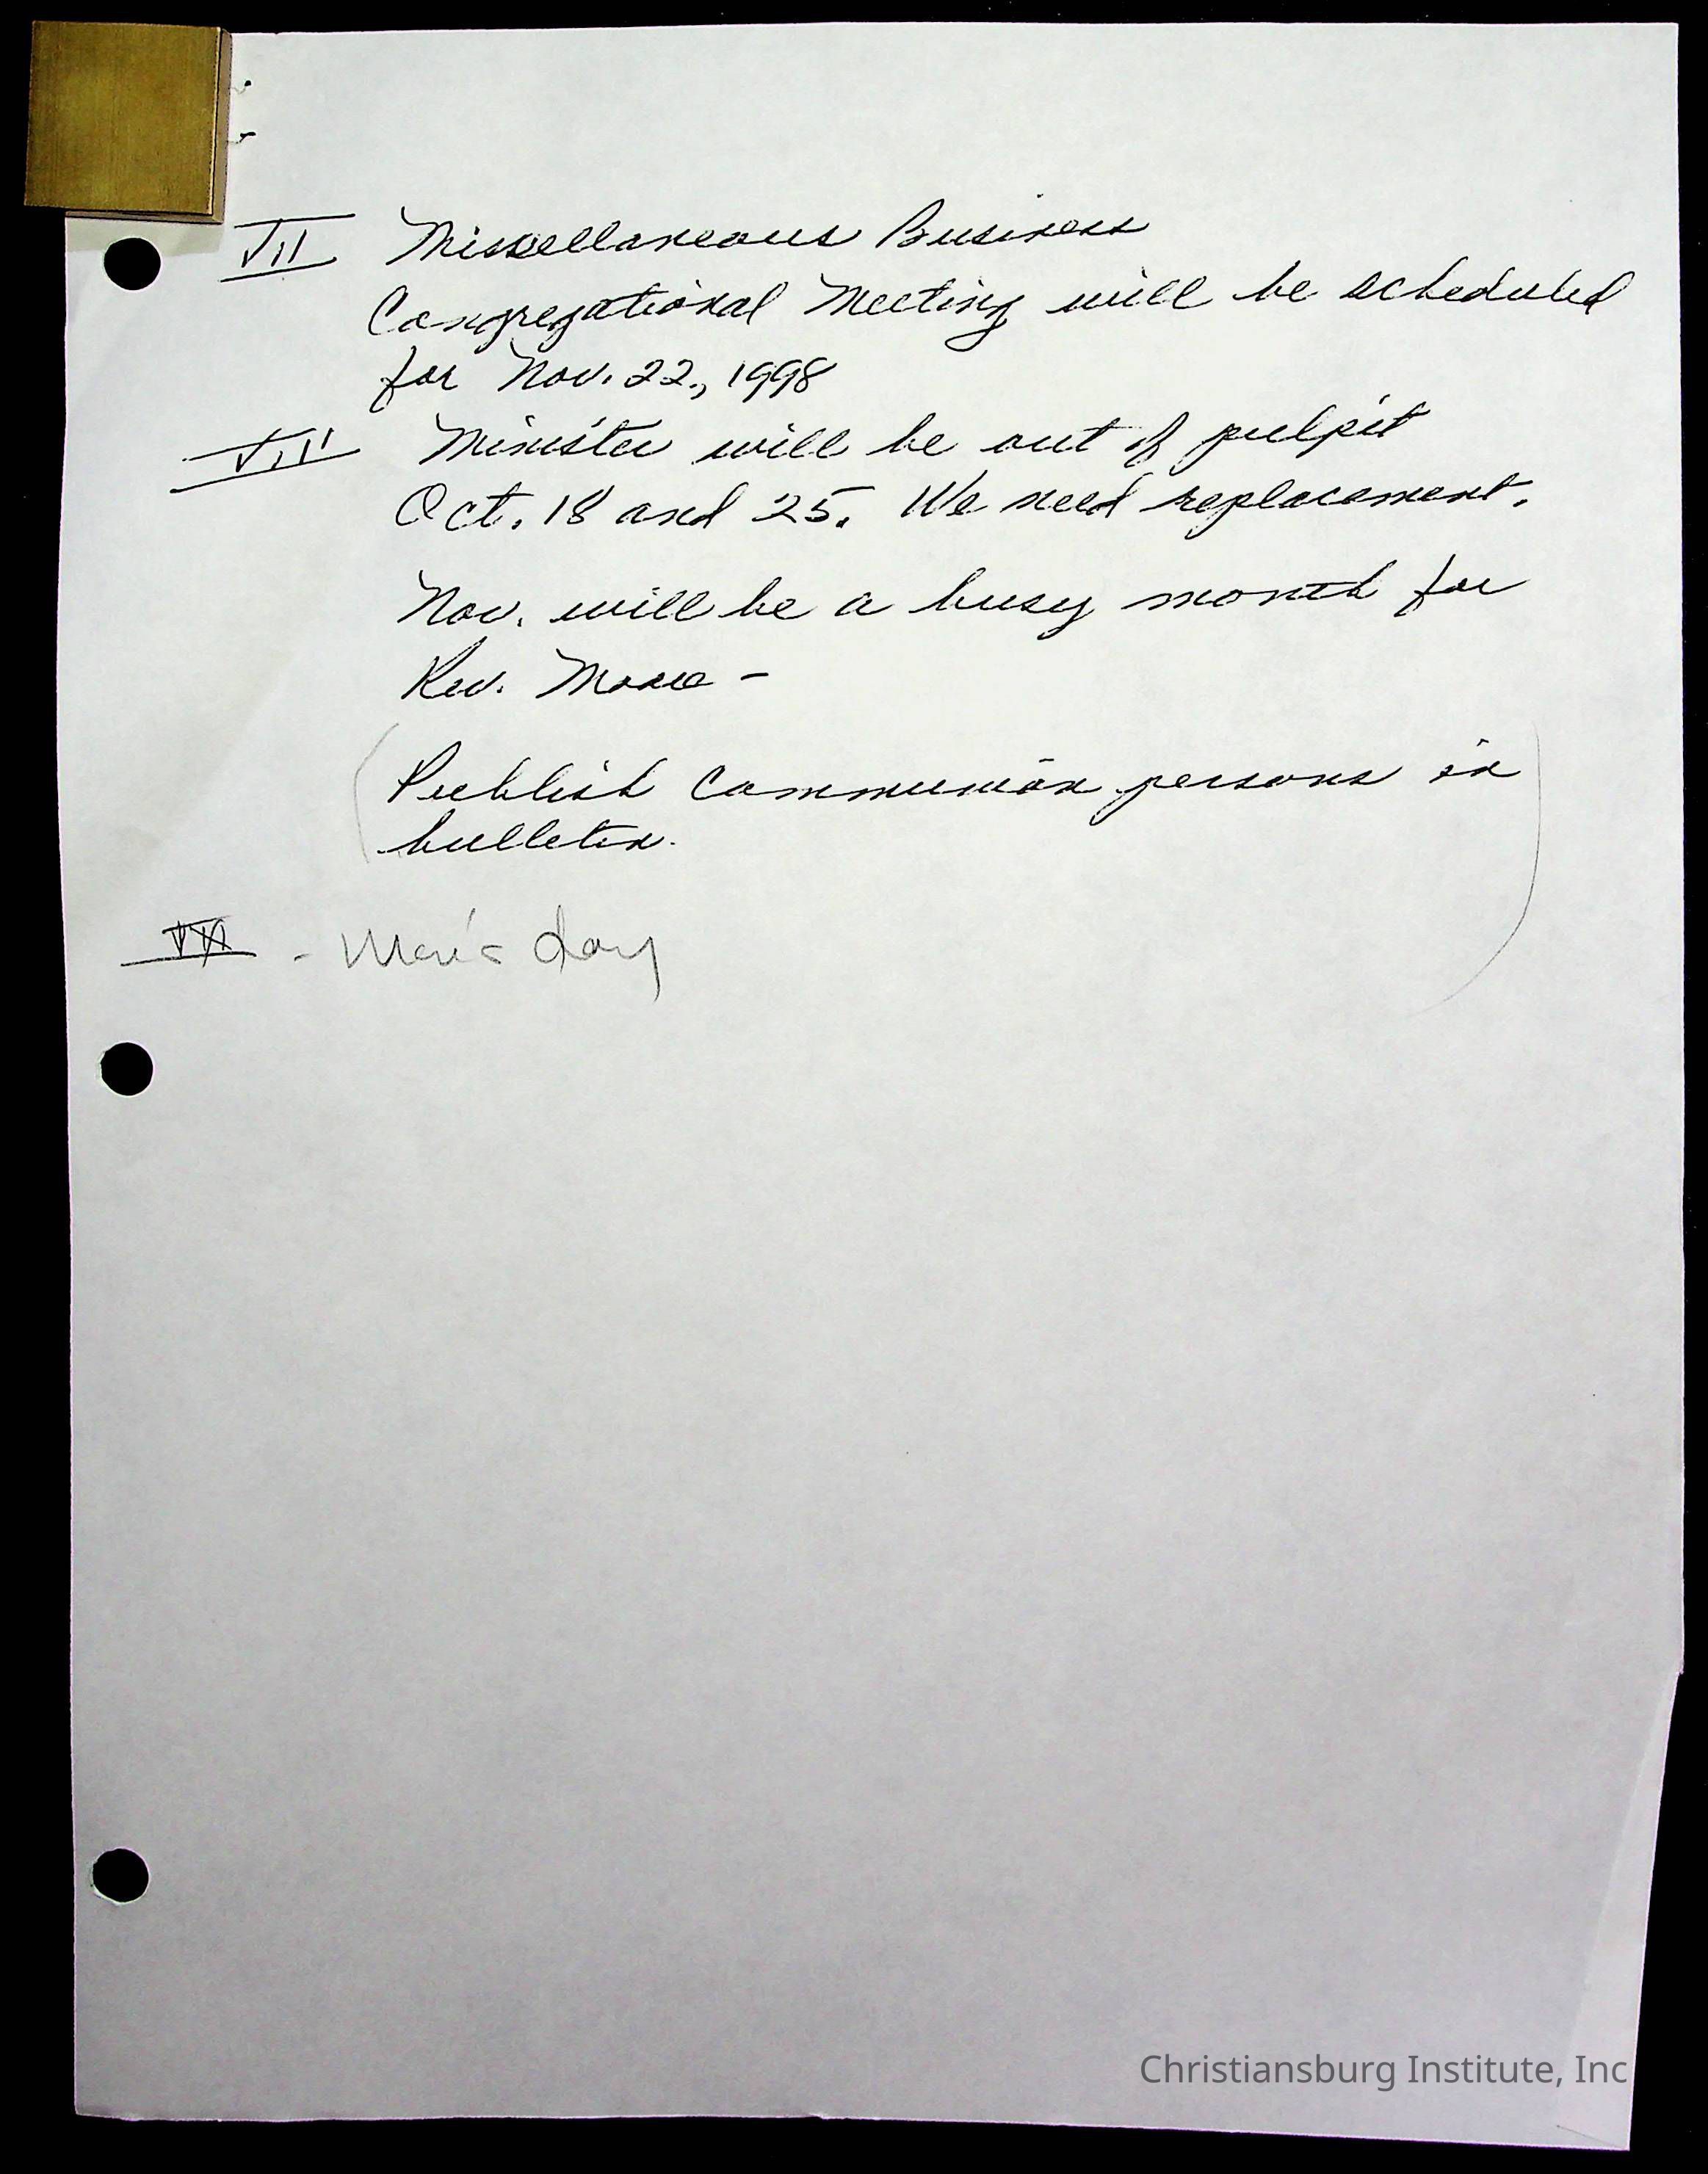 VII Missellaneous Business
Congregational Meeting will be scheduled
for Nov. 22, 1998
VII Minister will be out of pulpit
Oct. 18 and 25. We need replacement.
Nov. will be a busy month for
Rev. Moore -
(Publish Communion persons in
bulletin.)
- Men's day
Christiansburg Institute, Inc